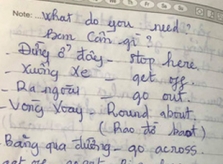 Note: What do you need?
Bem cần gì?
- Đứng ở đây - stop here
- Xuống xe - get off
- Ra ngoài - go out.
- Vòng Xoay - Round about
Băng qua đường - go across